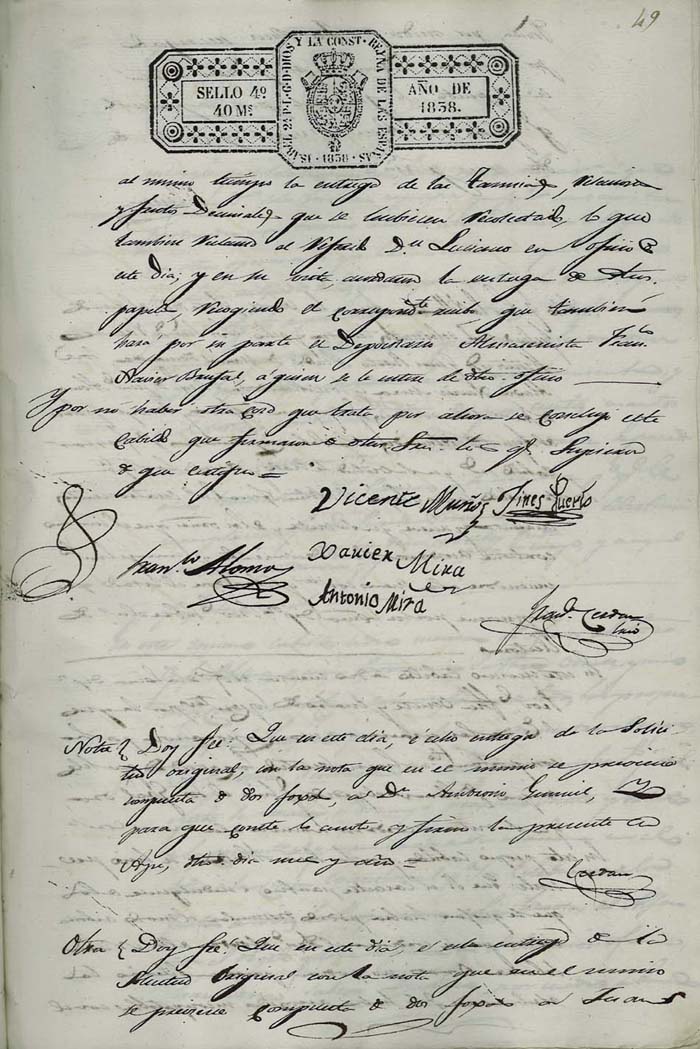 49
ISABEL 2ª P. L. G. D. DIOS Y LA CONST. REYNA DE LAS ESPAÑAS
1838
SELLO 4º
40 Mˢ
AÑO DE
1838.
al mismo tiempo la entrega de las
y frutos Decimales que se hubiesen recolectado, lo que
tambien al Dⁿ Luciano en oficio de
este dia; y en su la entrega de
papeles, recogiendo el correspondᵗᵉ recibo, que tambien
hará por su parte el Depositario Franᶜᵒ
Xavier Brufal, á quien se le entere de dho. oficio
Y por no haber otra cosa que tratar por ahora se concluyó este
Cabildo que firmaron dhos. Sres. los qᵉ supieron
de que certifico =
Vicente Muñoz
Gines Puerto
Franᶜᵒ Alonso
Xavier Mira
Antonio Mira
Cerdan
Nota Doy fee: Que en este dia, é echo entrega de la Solici-
tud original, con la nota que en el mismo se previene
compuesta de dos foxas, á Dⁿ Ambrosio
para que conste lo anoto y firmo la presente en
dho. dia mes y año =
Cerdan
Otra Doy fee: Que en este dia, é echo entrega de la
Solicitud Original con la nota que en el mismo
se previene Compuesta de dos foxas a Juan